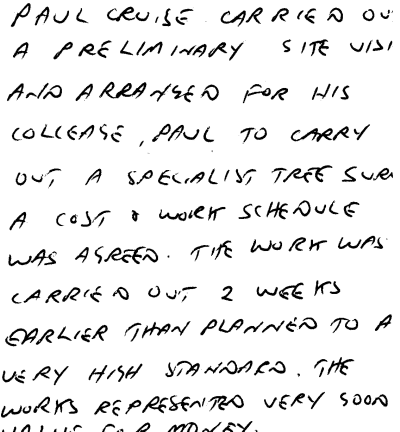 PAUL CRUISE CARRIED OU
A PRELIMINARY SITE VISI
AND ARRANGED FOR HIS
COLLEAGE, PAUL TO CARRY
OUT A SPECIALIST TREE SUR
A COST & WORK SCHEDULE
WAS AGREED. THE WORK WAS
CARRIED OUT 2 WEEKS
EARLIER THAN PLANNED TO A
VERY HIGH STANDARD. THE
WORKS REPRESENTED VERY SOOD
VALUE FOR MONEY.